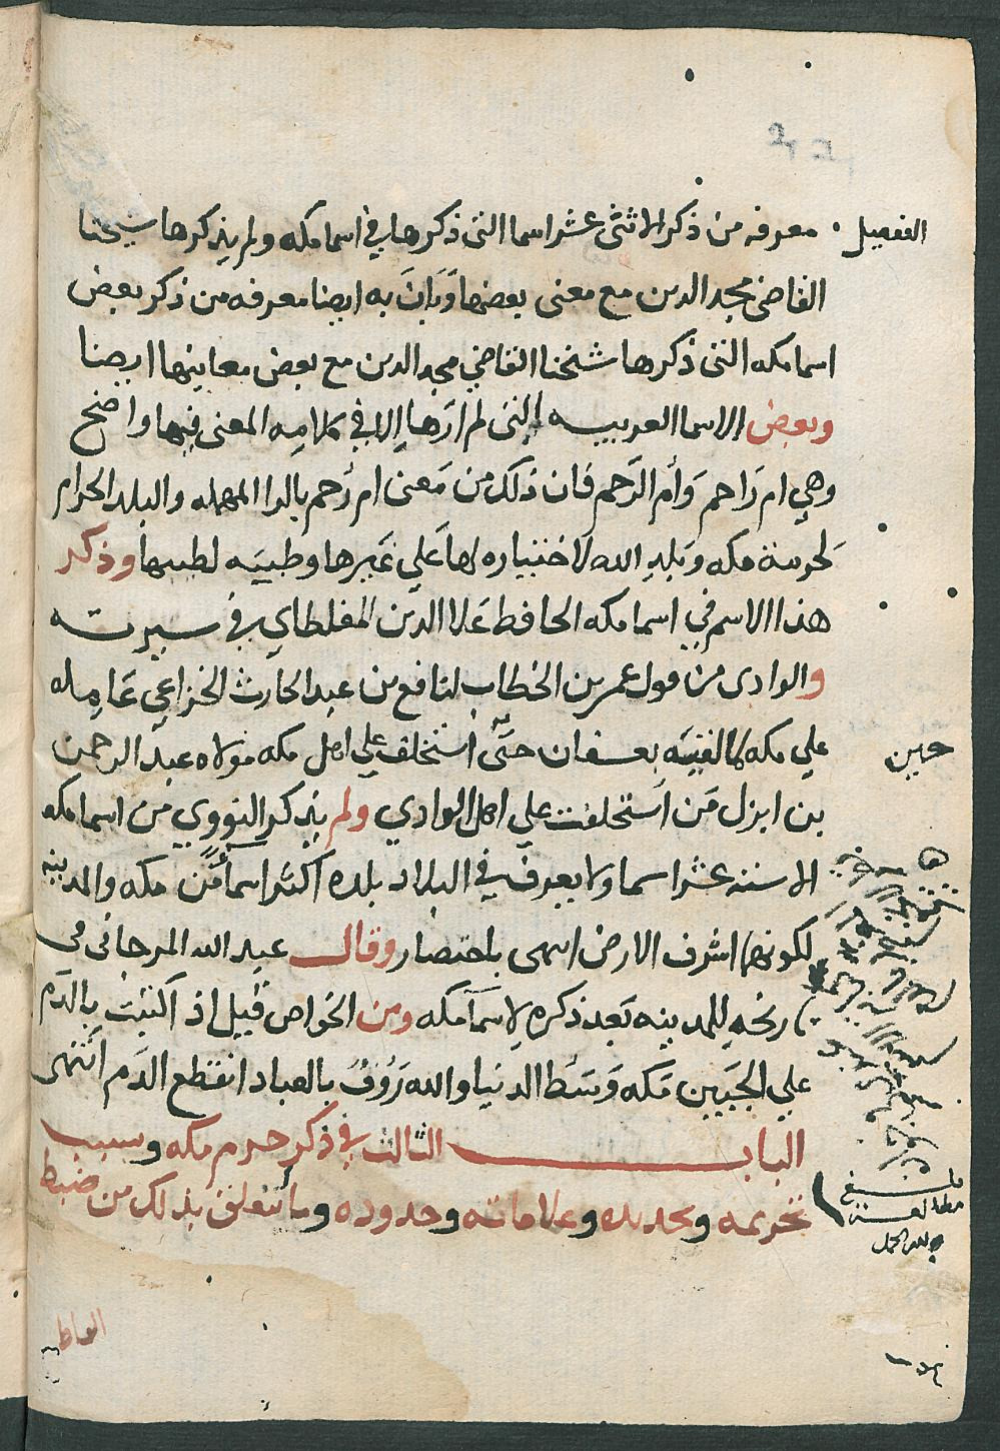 الفصيل معرفه من ذكر الاثنى عشر اسما التى ذكرها في اسما مكه ولم يذكرها شيخنا
القاضى مجد الدين مع معنى بعضها وَبَانَ به ايضا معرفه من ذكر بعض
اسما مكه التى ذكرها شيخنا القاضي مجد الدين مع بعض معانيها ايضا
وبعض الاسما الغريبيه التى لم ارَها الا في كلامِه المعنى فيها واضح
وهي ام رَاحم وَأم الرَّحم فان ذلك من مَعنى ام رُحم بالرا المهمله والبلد الحرام
لحرمة مكه وبلد الله لاختياره لها علي غيرها وطيبَه لطيبها وذكر
هذا الاسم في اسما مكه الحافظ علا الدين المغلطاي في سيرته
والوادى من قول عمر بن الخطاب لنافع بن عبد الحارث الخزاعي عَامِله
علي مكه لما لقيَه بعسفان حتى استخلف علي اهل مكه مولاه عبد الرحمن
حين
بن ابزل مَن استخلفت علي اهل الوادي ولم يذكر النووي من اسما مكه
الا سته عشر اسما ولا يعرف في البلاد بلده اكثر اسماً من مكه والمدينه
لكونها اشرف الارض انتهى باختصار وقال عبد الله المرجانى فى
تاريخه للمدينه بَعد ذكره لاسما مكه ومن الخواص قيل اذ اكتبت بالدَّم
علي الجَبين مَكه وَسَط الدنيا والله رَؤوفُ بالعباد انقطع الدَم انتهى
الباب الثالث في ذكر حرم مكه وسبب
تحريمه وتحديده وعلاماته وحدوده وما يتعلق بذلك من ضبط
بلغ
مطالعة